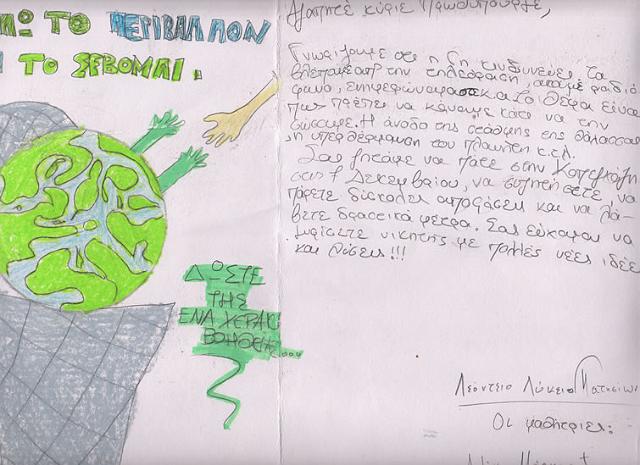 ΤΟ ΠΕΡΙΒΑΛΛΟΝ
ΤΟ ΣΕΒΟΜΑΙ.
ΔΩΣΤΕ
ΤΗΣ
ΕΝΑ ΧΕΡΑΚΙ
ΒΟΗΘΕΙΑΣ....
Αγαπητέ κύριε Πρωθυπουργέ,
Γνωρίζουμε ότι η Γη κινδυνεύει. Το
βλέπουμε από την τηλεόραση, ραδιό
φωνο, ενημερωνόμαστε και το θέμα είναι
πως πρέπει να κάνουμε κάτι να την
σώσουμε. Η άνοδο της στάθμης της θάλασσας
η υπερθέρμανση του πλανήτη κ.τ.λ.
Σας ζητάμε να πάτε στην Κοπεγχάγη
στις 7 Δεκεμβρίου, να συζητήσετε να
πάρετε δύσκολες αποφάσεις και να λά-
βετε δραστικά μέτρα. Σας εύχομαι να
γυρίσετε νικητής με πολλές νέες ιδέες
και λύσεις!!!
Λεόντειο Λύκειο Πατησίων
Οι μαθήτριες: